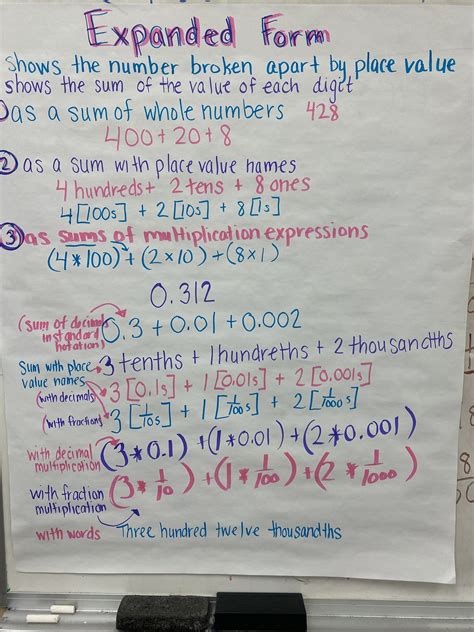 Expanded Form
Shows the number broken apart by place value
shows the sum of the value of each digit
as a sum of whole numbers 428
400+20+8
2 as a sum with place value names
4 hundreds + 2 tens + 8 ones
4 [100s] + 2 [10s] + 8 [1s]
3 as sums of multiplication expressions
(4*100) + (2×10) + (8×1)
0.312
(sum of decimals in standard notation) 0.3 + 0.01 + 0.002
Sum with place value names 3 tenths + 1 hundreths + 2 thousandths
(with decimals) 3 [0.1s] + 1 [0.01s] + 2 [0.001s]
(with fractions) 3 [1/10 s] + 1 [1/100 s] + 2 [1/1000 s]
with decimal multiplication (3*0.1) + (1*0.01) + (2*0.001)
with fraction multiplication (3 * 1/10) + (1 * 1/100) + (2 * 1/1000)
with words Three hundred twelve thousandths